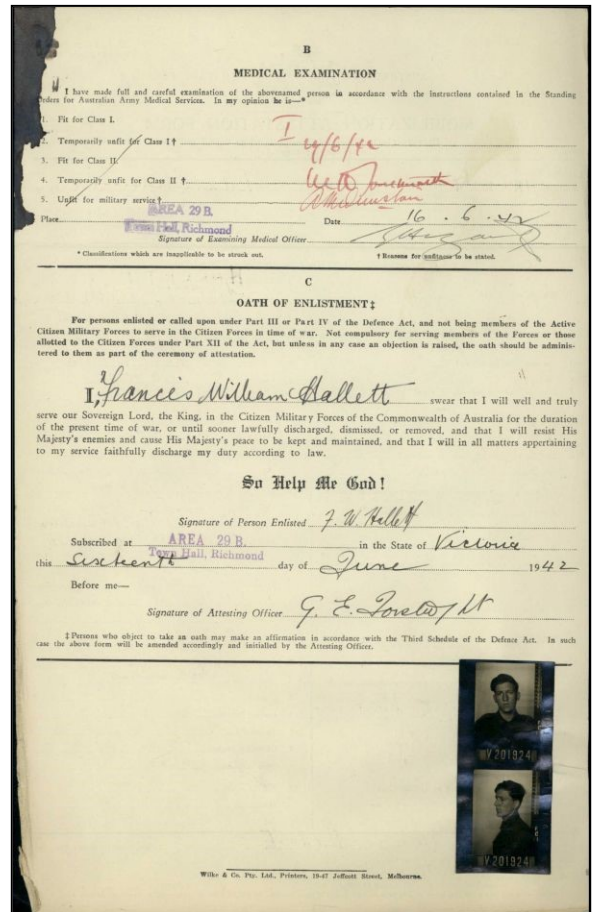 B
MEDICAL EXAMINATION
I have made full and careful examination of the abovenamed person in accordance with the instructions contained in the Standing
Orders for Australian Army Medical Services. In my opinion he is—*
1. Fit for Class I.
I
2. Temporarily unfit for Class I †
3. Fit for Class II.
4. Temporarily unfit for Class II †
5. Unfit for military service †
AREA 29 B.
Town Hall, Richmond
Place
Date 16 . 6 . 42
Signature of Examining Medical Officer
* Classifications which are inapplicable to be struck out.
† Reasons for unfitness to be stated.
C
OATH OF ENLISTMENT‡
For persons enlisted or called upon under Part III or Part IV of the Defence Act, and not being members of the Active
Citizen Military Forces to serve in the Citizen Forces in time of war. Not compulsory for serving members of the Forces or those
allotted to the Citizen Forces under Part XII of the Act, but unless in any case an objection is raised, the oath should be adminis-
tered to them as part of the ceremony of attestation.
I, Francis William Hallett swear that I will well and truly
serve our Sovereign Lord, the King, in the Citizen Military Forces of the Commonwealth of Australia for the duration
of the present time of war, or until sooner lawfully discharged, dismissed, or removed, and that I will resist His
Majesty's enemies and cause His Majesty's peace to be kept and maintained, and that I will in all matters appertaining
to my service faithfully discharge my duty according to law.
So Help Me God!
Signature of Person Enlisted F. W. Hallett
Subscribed at AREA 29 B. in the State of Victoria
Town Hall, Richmond
this Sixteenth day of June 1942
Before me—
Signature of Attesting Officer G. E.
‡ Persons who object to take an oath may make an affirmation in accordance with the Third Schedule of the Defence Act. In such
case the above form will be amended accordingly and initialled by the Attesting Officer.
V 201924
V 201924
Wilke & Co. Pty. Ltd., Printers, 19-47 Jeffcott Street, Melbourne.